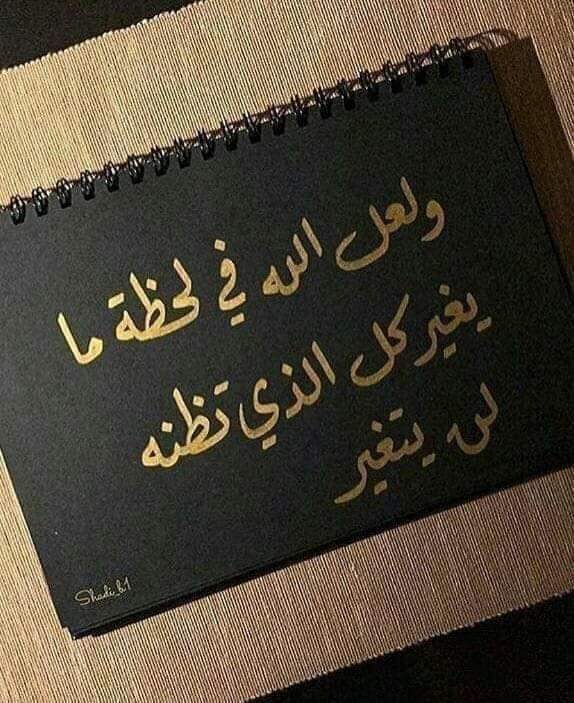 ولعل الله في لحظة ما
يغير كل الذي تظنه
لن يتغير
Shadi_b1